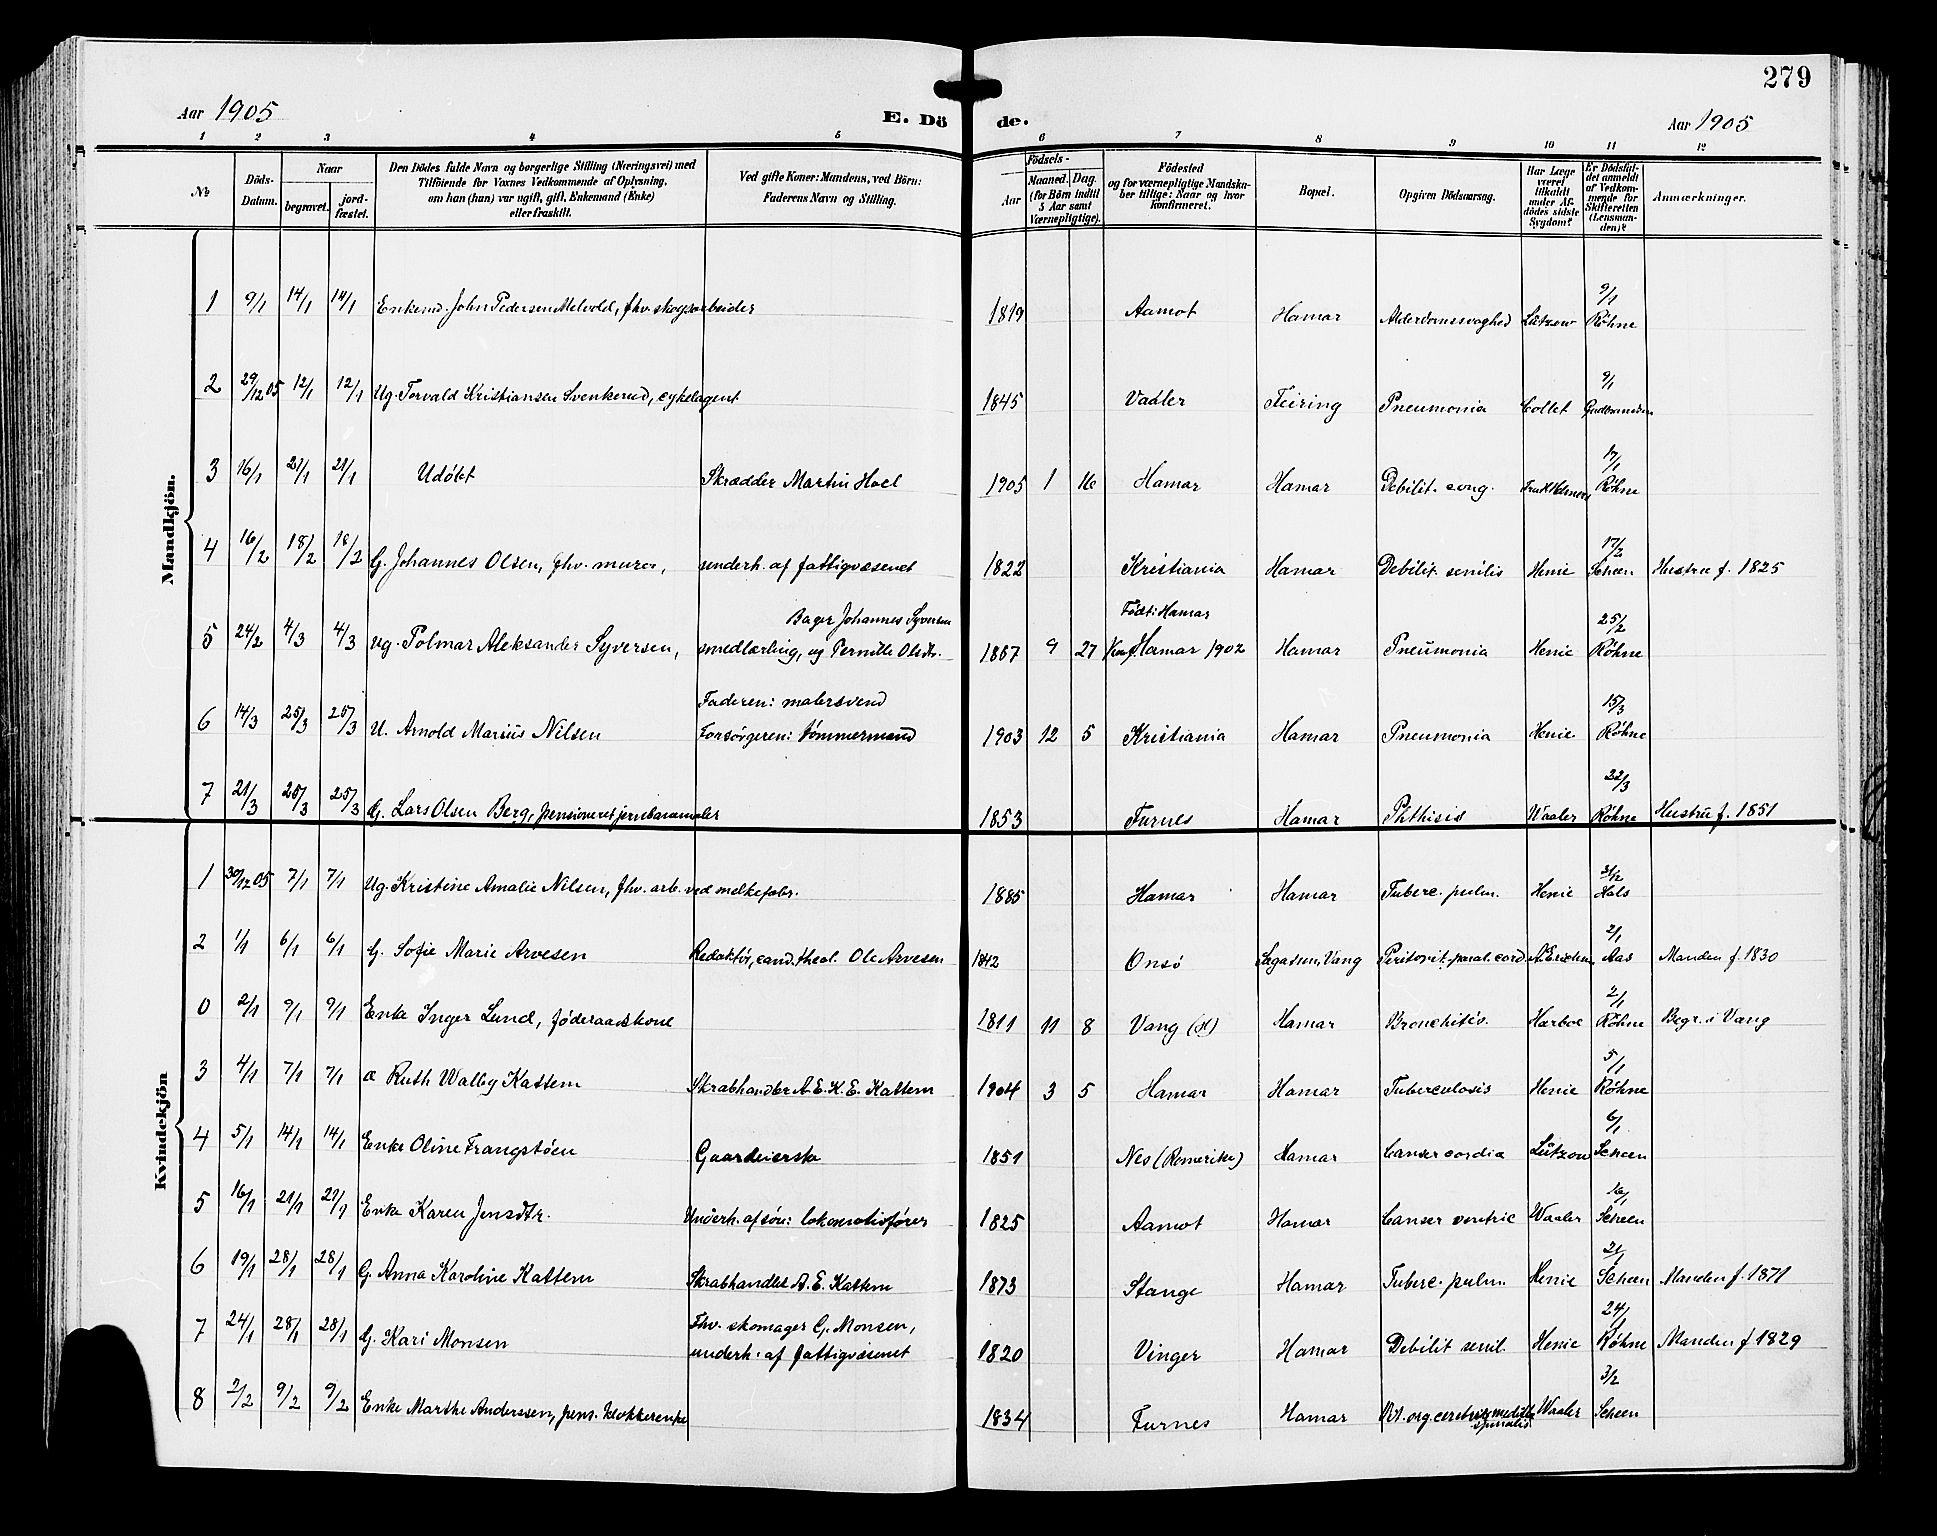 279
Aar 1905 E. Dö de. Aar 1905
1 2 3 4 5 6 7 8 9 10 11 12
No Döds-Datum. Naar begravet. jord-fæstet. Den Dödes fulde Navn og borgerlige Stilling (Næringsvei) med Tilföiende for Voxnes Vedkommende af Oplysning, om han (hun) var ugift, gift, Enkemand (Enke) eller fraskilt. Ved gifte Koner: Mandens, ved Börn: Faderens Navn og Stilling. Födsels- Aar Maaned. Dag. (for Börn indtil 5 Aar samt Værnepligtige). Födested og for værnepligtige Mandskaber tillige: Naar og hvor konfirmeret. Bopæl. Opgiven Dödsaarsag. Har Læge været tilkaldt under Afdödes sidste Sygdom? Er Dödsfaldet anmeldt af Vedkommende for Skifteretten (Lensmanden)? Anmærkninger.
Mandkjön.
1 9/1 14/1 14/1 Enkem. John Pedersen Melvold, fhv. skogsarbeider 1819 Aamot Hamar Alderdomssvaghed Lützow 9/1 Röhne
2 29/12 05 12/1 12/1 Ug. Torvald Kristiansen Svenkerud, cykelagent 1845 Vaaler Feiring Pneumonia Collet 9/1
3 16/1 21/1 21/1 Udøbt Skrædder Martin Hoel 1905 1 16 Hamar Hamar Debilit. cong. 17/1 Röhne
4 16/2 18/2 18/2 G. Johannes Olsen, fhv. murer, underh. af fattigvæsenet 1822 Kristiania Hamar Debilit. senilis Henie 17/2 Scheen Hustru f. 1825
5 24/2 4/3 4/3 Ug. Polmar Aleksander Syversen, smedlærling, Bager Johannes Syversen og Pernille Olsdtr. 1887 9 27 Født: Hamar Konf. Hamar 1902 Hamar Pneumonia Henie 25/2 Röhne
6 14/3 25/3 25/3 U. Arnold Marius Nilsen Faderen: malersvend
Forsørgeren: tømmermand 1903 12 5 Kristiania Hamar Pneumonia Henie 15/3 Röhne
7 21/3 25/3 25/3 G. Lars Olsen Berg, pensioneret jernbanemaler 1853 Furnes Hamar Phthisis Waaler 22/3 Röhne Hustru f. 1851
Kvindekjön
1 30/12 05 7/1 7/1 Ug. Kristine Amalie Nilsen, fhv. arb. ved melkefabr. 1885 Hamar Hamar Tuberc. pulm. Henie 31/12 Hals
2 1/1 6/1 6/1 G. Sofie Marie Arvesen Redaktør, cand. theol. Ole Arvesen 1842 Onsö Sagatun, Vang 2/1 Aas Manden f. 1830
0 2/1 9/1 9/1 Enke Inger Lund, føderaadskone 1811 11 8 Vang (H) Hamar Bronchitis. Harboe 2/1 Röhne Begr. i Vang
3 4/1 7/1 7/1 æ Ruth Walby Kattem Skrabhandler A. E. K. E. Kattem 1904 3 5 Hamar Hamar Tuberculosis Henie 5/1 Röhne
4 5/1 14/1 14/1 Enke Oline Frangstøen Gaardeierske 1851 Nes (Romerike) Hamar Canser cordia Lützow 6/1 Scheen
5 16/1 21/1 21/1 Enke Karen Jensdtr. Underh. af søn: lokomotivfører 1825 Aamot Hamar Canser ventric Waaler 16/1 Scheen
6 19/1 28/1 28/1 G. Anna Karoline Kattem Skrabhandler A. E. Kattem 1873 Stange Hamar Tuberc. pulm. Henie 21/1 Scheen Manden f. 1871
7 24/1 28/1 28/1 G. Kari Monsen Fhv. skomager G. Monsen,
underh. af fattigvæsenet 1820 Vinger Hamar Debilit senil. Henie 24/1 Röhne Manden f 1829
8 2/2 9/2 9/2 Enke Marthe Anderssen, pens. klokkerenke 1834 Furnes Hamar Vit. org. cerebri medulla spinalis Waaler 3/2 Scheen